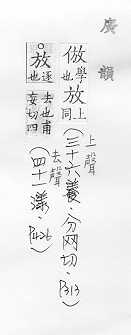 廣韻
倣學也放同上
上聲(三十六養·分网切·P313
。放逐也去也甫妄切四
去聲(四十一漾·P426